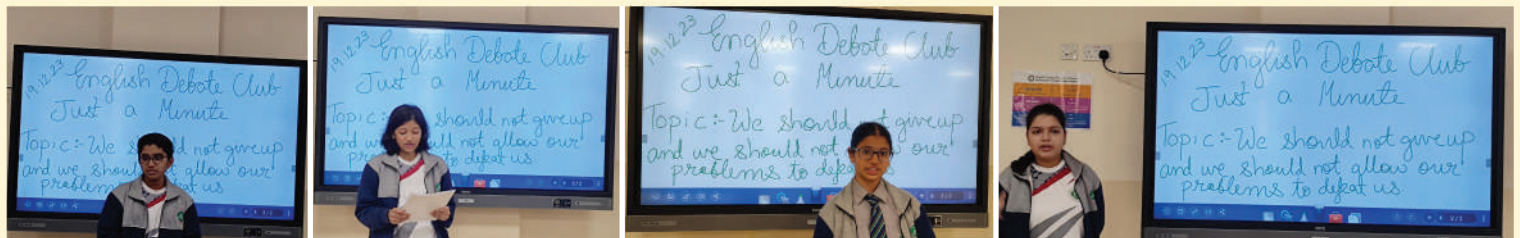 19.12.23 English Debate Club
Just a Minute
Topic:- We should not giveup
and we should not allow our
problems to defeat us
19.12.23 English Debate Club
Just a Minute
Topic:- should not giveup
and we should not allow our
to defeat us
19.12.23 English Debate Club
Just a Minute
Topic:- We should not giveup
and we should not allow our
problems to defeat
19.12.23 English Debate Club
Just a Minute
Topic:- We should not giveup
and we should not allow our
problems to defeat us